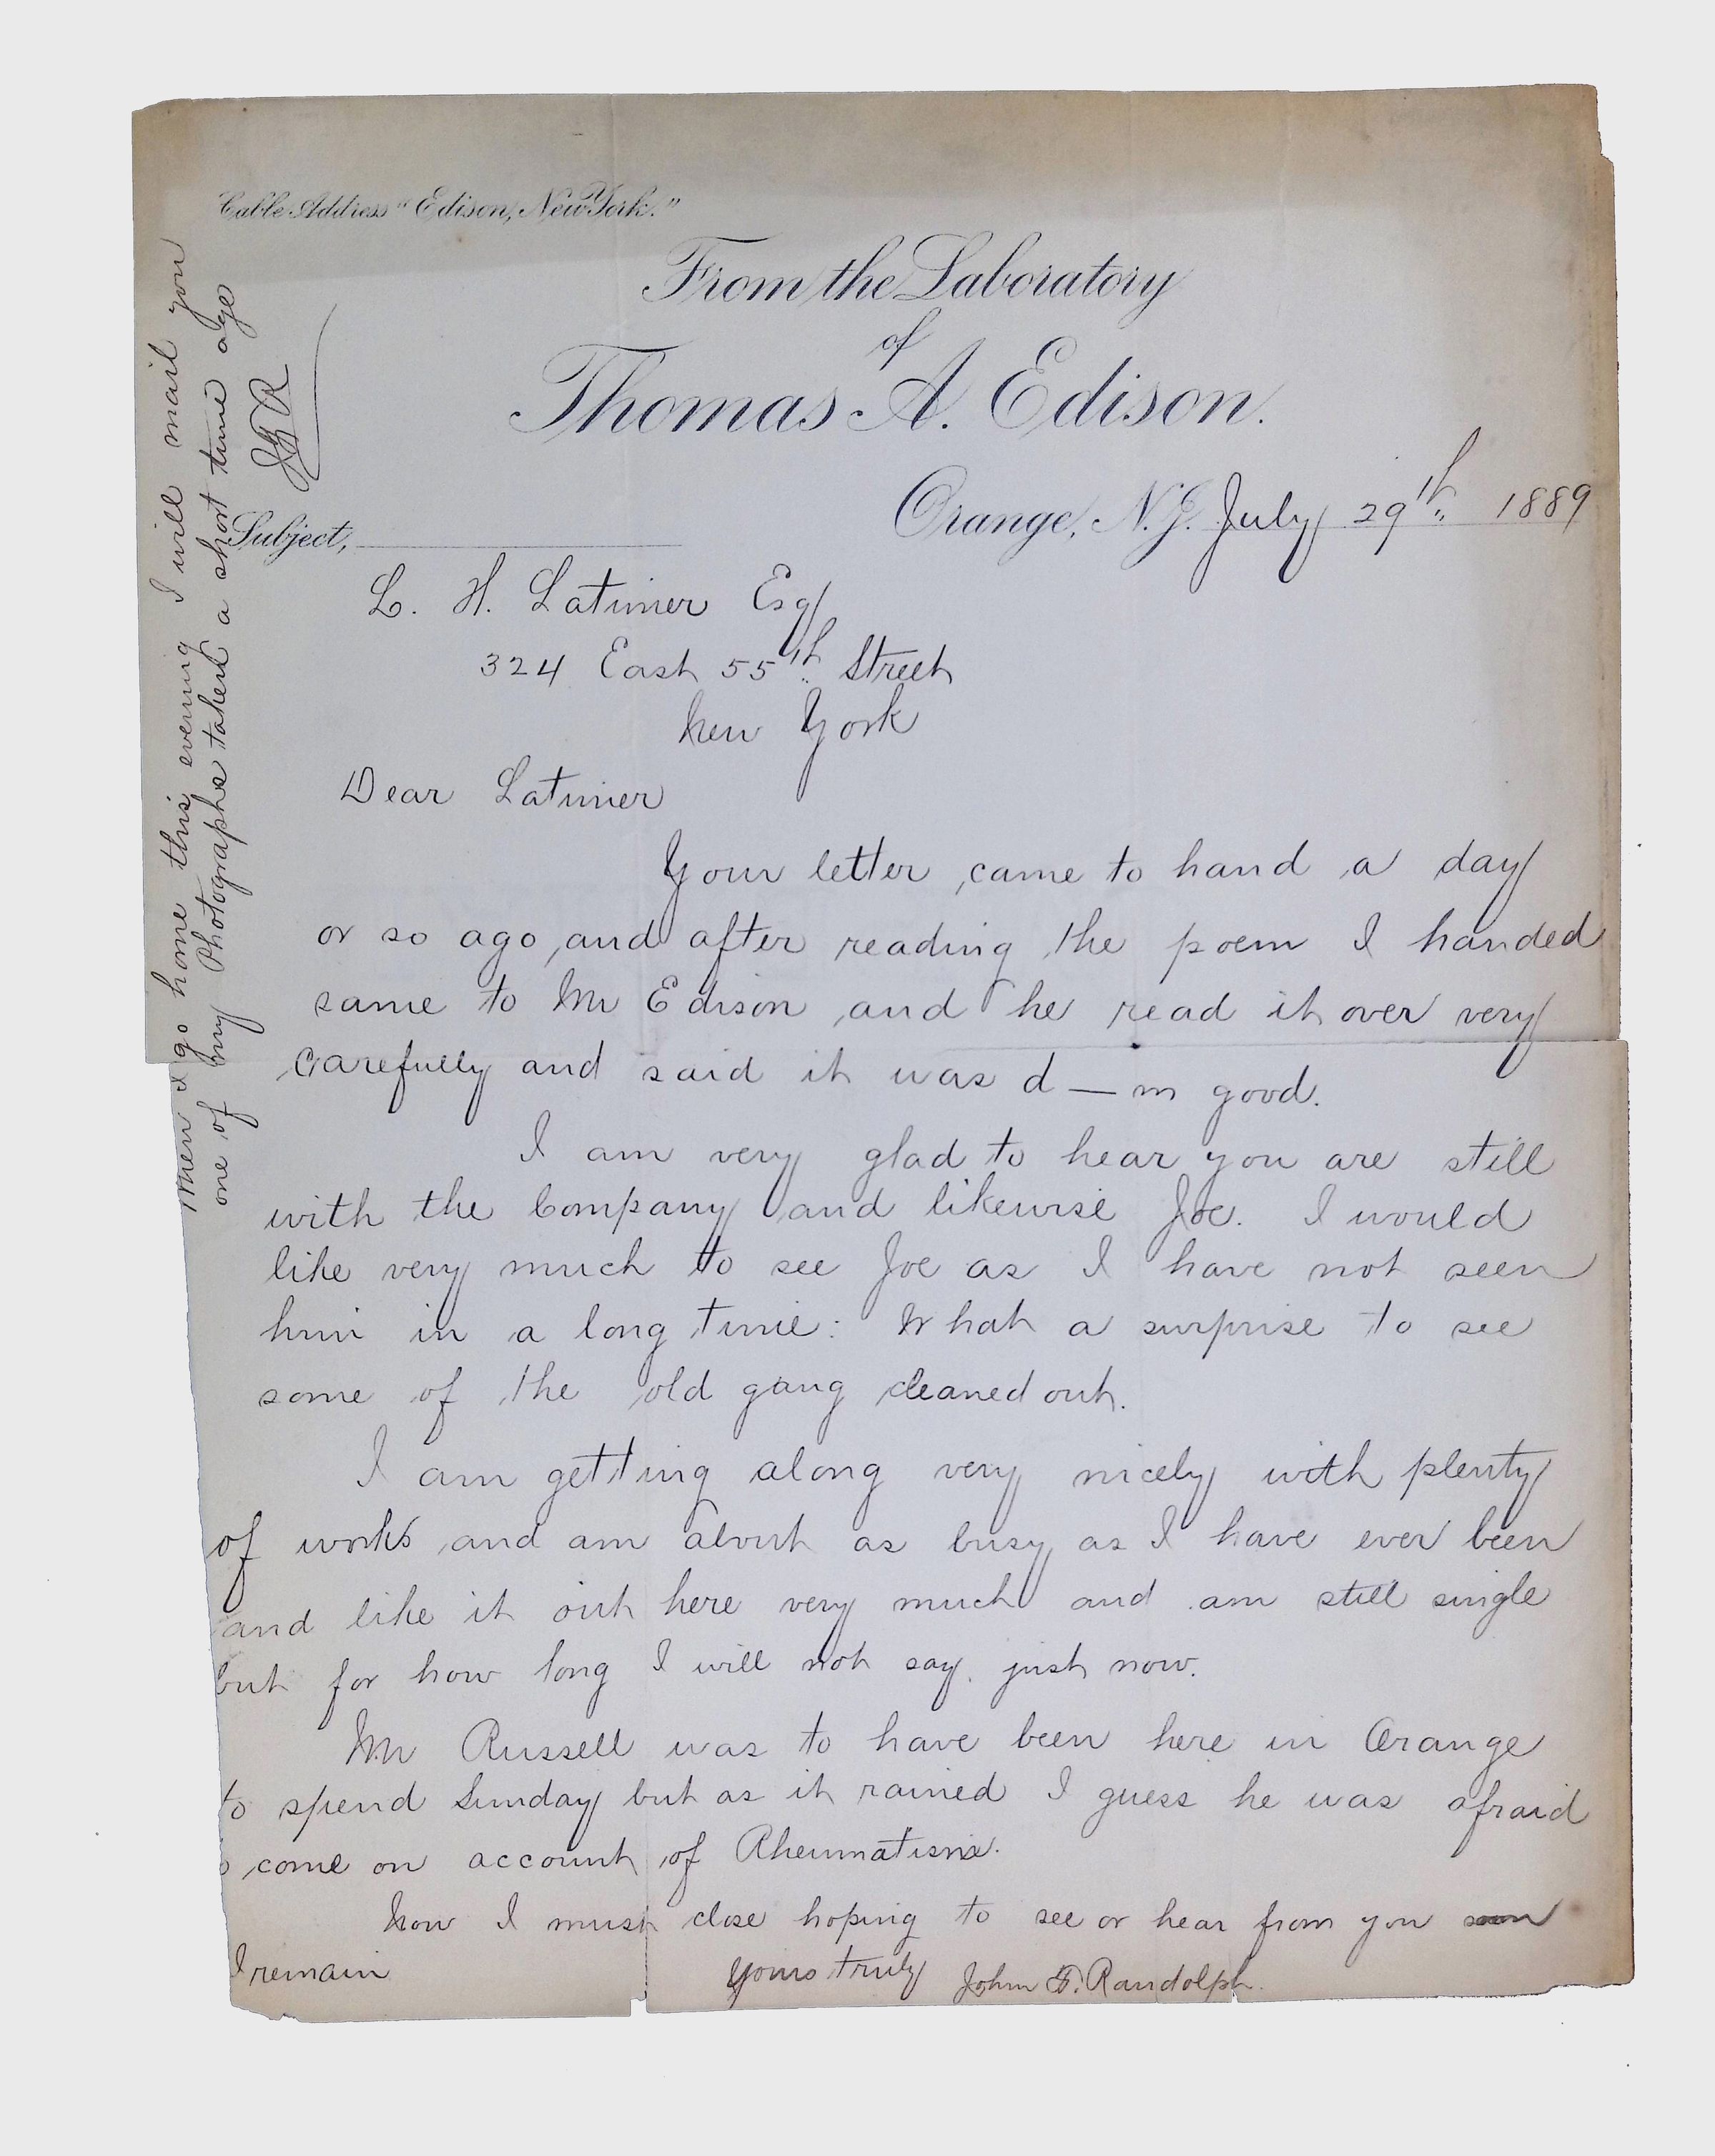 Cable Address "Edison, New York."
From the Laboratory
of
Thomas A. Edison.
Orange, N.J. July 29th 1889
Subject,
L. H. Latimer Esq
324 East 55th Street
New York
Dear Latimer
Your letter came to hand a day
or so ago, and after reading the poem I handed
same to Mr Edison and he read it over very
carefully and said it was d—m good.
I am very glad to hear you are still
with the Company and likewise Joe. I would
like very much to see Joe as I have not seen
him in a long time: What a surprise to see
some of the old gang cleaned out.
I am getting along very nicely with plenty
of work and am about as busy as I have ever been
and like it out here very much and am still single
but for how long I will not say just now.
Mr Russell was to have been here in Orange
to spend Sunday but as it rained I guess he was afraid
come on account of Rheumatism.
Now I must close hoping to see or hear from you soon
I remain
Yours truly John F. Randolph.
When I go home this evening I will mail you
one of my Photographs taken a short time ago